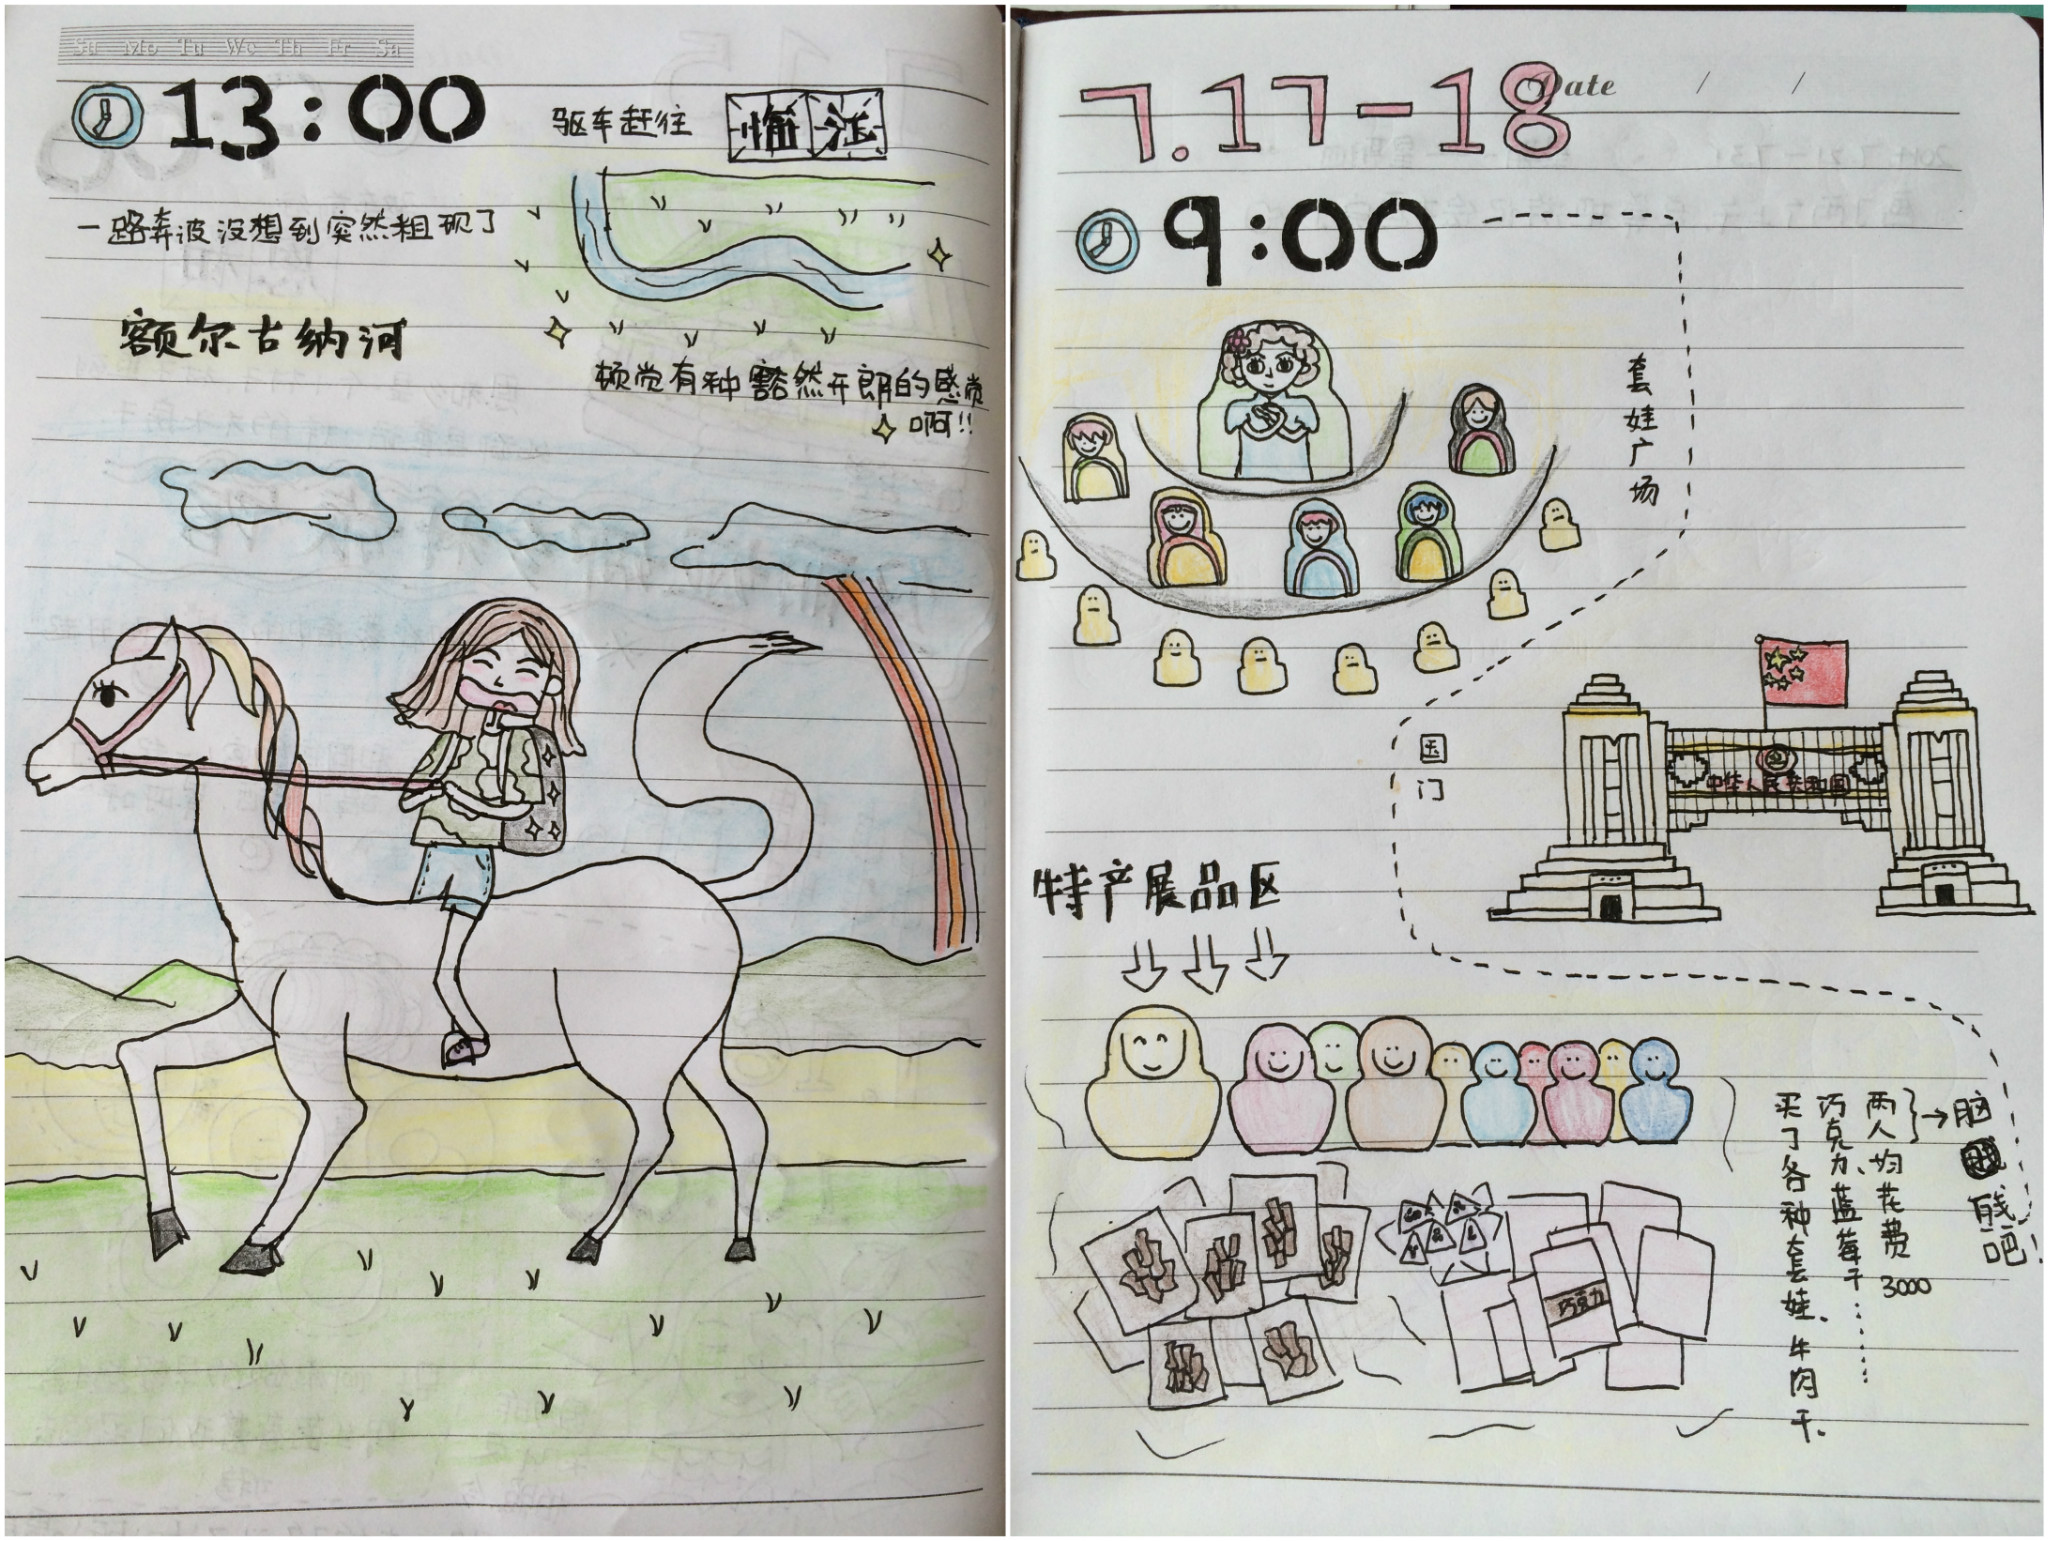 Su Mo Tu We Th Fr Sa
13:00
驱车赶往 临江
一路奔波没想到突然粗现了
额尔古纳河
顿觉有种豁然开朗的感觉
啊!!
7.17-18
Date / /
9:00
套娃广场
国门
中华人民共和国
特产展品区
两人均花费3000
巧克力、蓝莓干……
买了各种套娃、牛肉干、
→脑
残吧!
巧克力